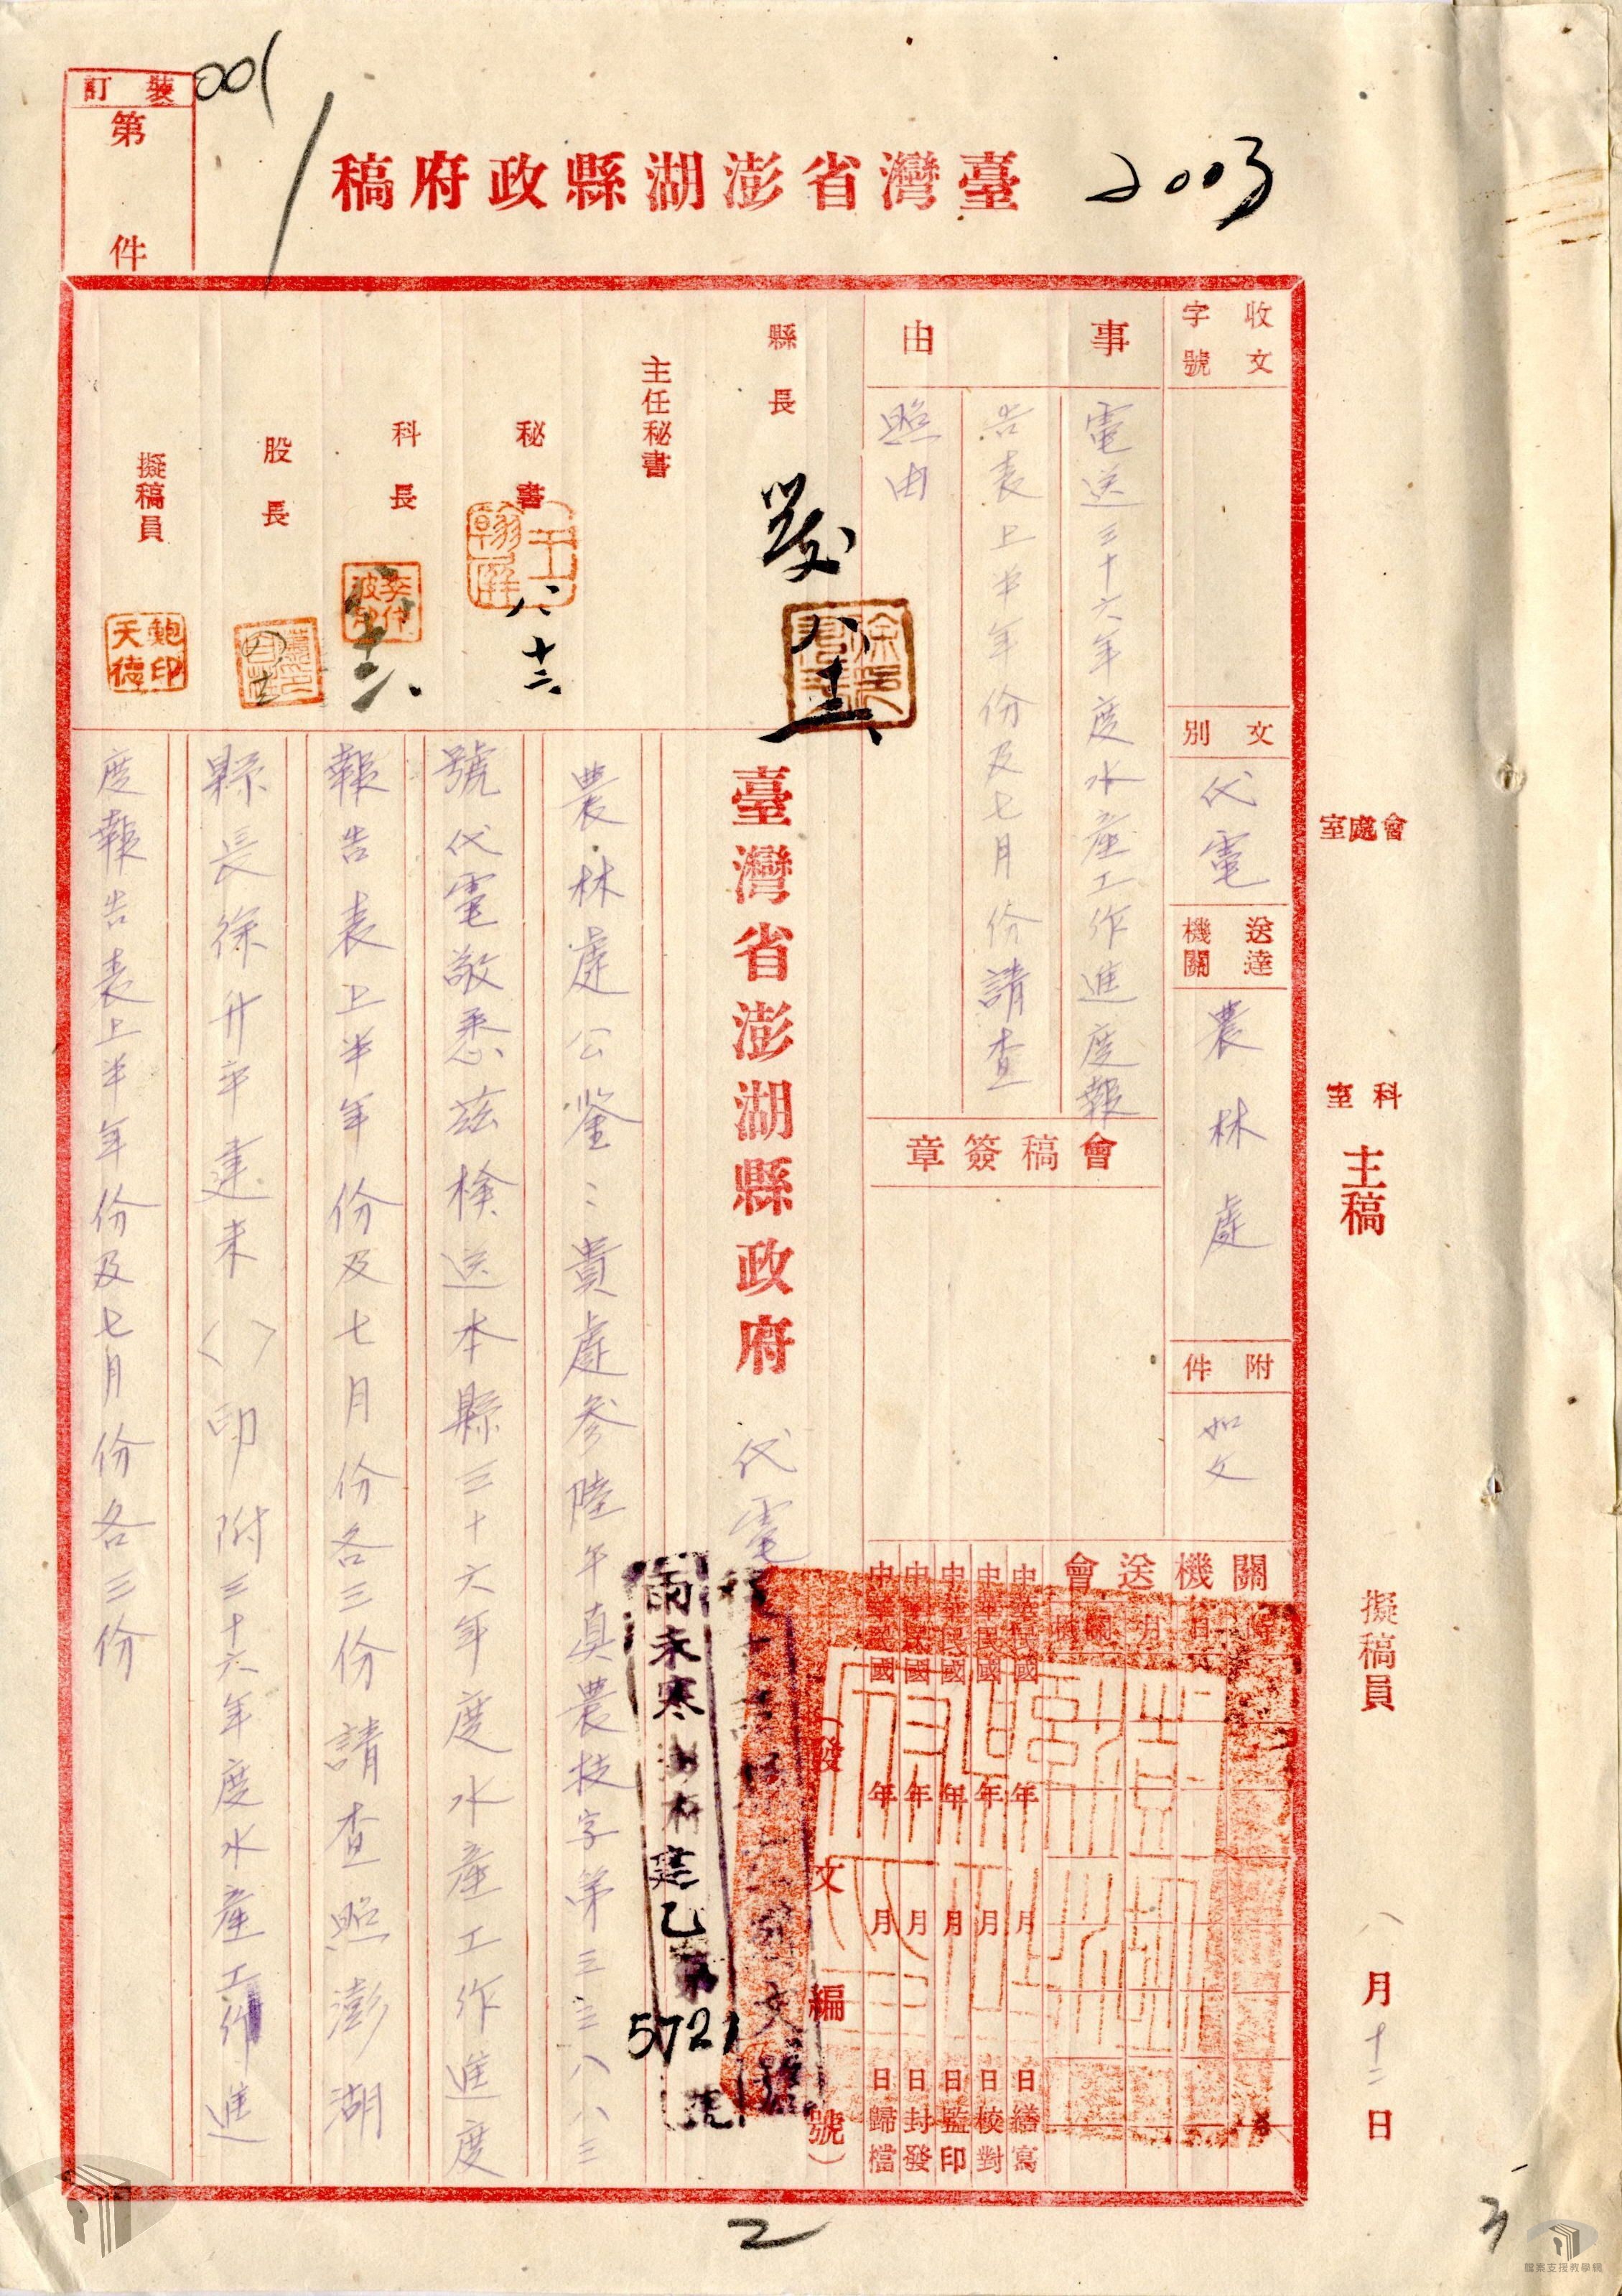 001
2003
臺灣省澎湖縣政府稿
裝訂
第 件
收文
字號
文別
代電
送達
機關
農林處
附件
如文
事由
電送三十六年度水產工作進度報
告表上半年份及七月份請查
照由
會稿簽章
縣長
發
八、十三、
主任秘書
秘書
八、十二、
科長
股長
擬稿員
鮑印
天德
臺灣省澎湖縣政府 代電
農林處公鑒:貴處參陸午真農技字第三三八八三
號代電敬悉茲検送本縣三十六年度水產工作進度
報告表上半年份及七月份各三份請查照澎湖
縣長徐升平建未( )印附三十六年度水產工作進
度報告表上半年份及七月份各三份
會送機關
中華民國 年 月 日繕寫
中華民國 年 月 日校對
中華民國 年 月 日監印
中華民國 年 月 日封發
中華民國 年 月 日歸檔
(發文編號)
5721
號
會處室
科室
主稿
擬稿員
八月十二日
2
3
檔案支援教學網